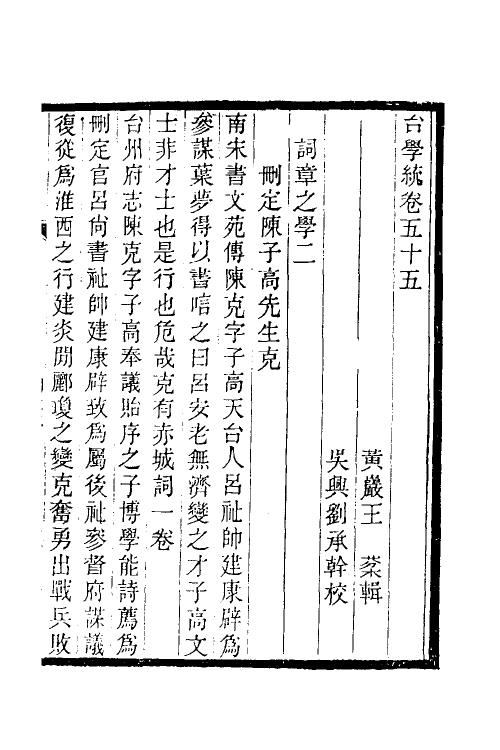 台學統卷五十五
黃巖王棻輯
吳興劉承幹校
詞章之學二
刪定陳子高先生克
南宋書文苑傳陳克字子高天台人呂祉帥建康辟爲
參謀葉夢得以書唁之曰呂安老無濟變之才子高文
士非才士也是行也危哉克有赤城詞一卷
台州府志陳克字子高奉議貽序之子博學能詩薦爲
刪定官呂尚書祉帥建康辟致爲屬後祉參督府謀議
復從爲淮西之行建炎閒酈瓊之變克奮勇出戰兵敗